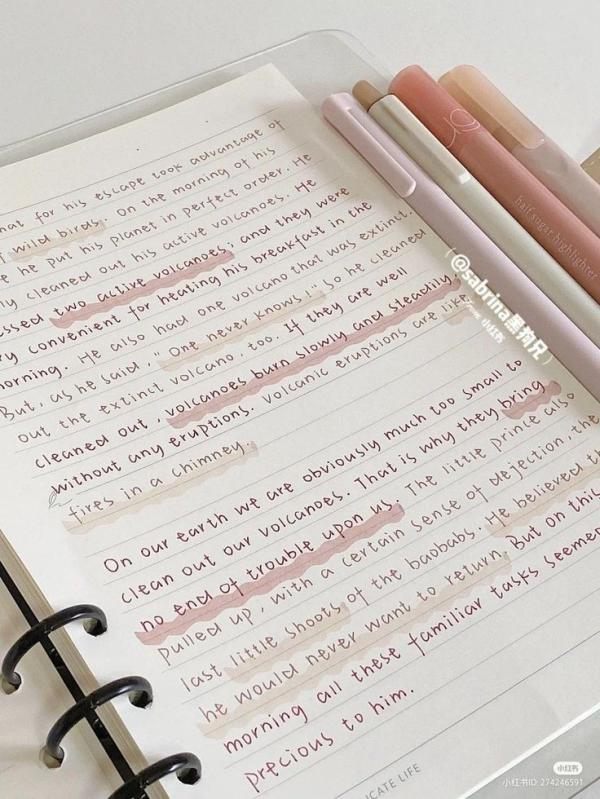 hat for his escape took advantage of
wild birds. On the morning of his
e he put his planet in perfect order. He
ly cleaned out his active volcanoes. He
essed two active volcanoes; and they were
ry convenient for heating his breakfast in the
morning. He also had one volcano that was extinct.
But, as he said, "One never knows!" So he cleaned
out the extinct volcano, too. If they are well
cleaned out, volcanoes burn slowly and steadily,
without any eruptions. Volcanic eruptions are like
fires in a chimney.
On our earth we are obviously much too small to
clean out our volcanoes. That is why they bring
no end of trouble upon us. The little prince also
pulled up, with a certain sense of dejection, the
last little shoots of the baobabs. He believed th
he would never want to return. But on this
morning all these familiar tasks seemed
precious to him.
ICATE LIFE
half sugar highlighter
@sabrina黑狗兄
小红书
小红书
小红书ID: 274246591